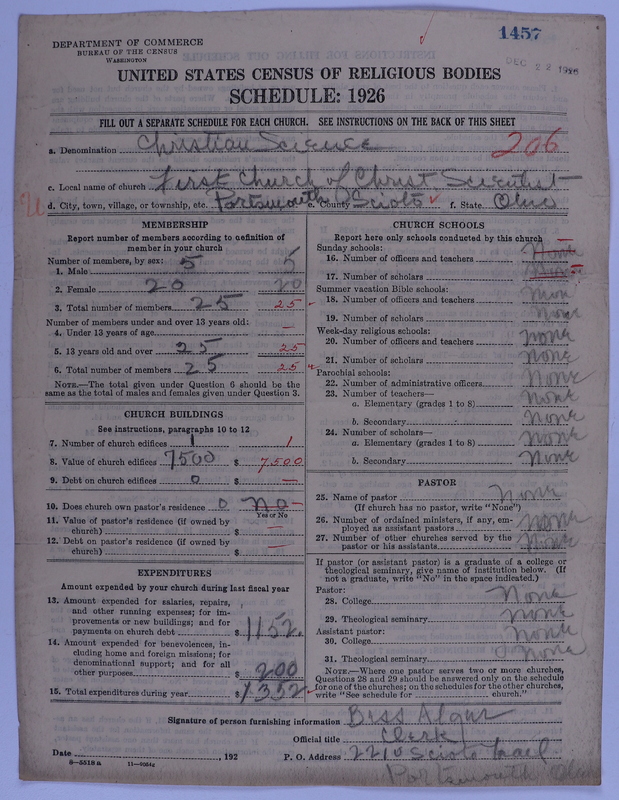 1457
DEC 22 1926
DEPARTMENT OF COMMERCE
BUREAU OF THE CENSUS
WASHINGTON
UNITED STATES CENSUS OF RELIGIOUS BODIES
SCHEDULE: 1926
FILL OUT A SEPARATE SCHEDULE FOR EACH CHURCH. SEE INSTRUCTIONS ON THE BACK OF THIS SHEET
a. Denomination Christian Science 206
c. Local name of church First Church of Christ, Scientist
d. City, town, village, or township, etc. Portsmouth e. County Scioto f. State Ohio
MEMBERSHIP
Report number of members according to definition of
member in your church
Number of members, by sex:
1. Male 5 5
2. Female 20 20
3. Total number of members 25 25
Number of members under and over 13 years old:
4. Under 13 years of age —
5. 13 years old and over 25 25
6. Total number of members 25 25
NOTE.—The total given under Question 6 should be the
same as the total of males and females given under Question 3.
CHURCH BUILDINGS
See instructions, paragraphs 10 to 12
7. Number of church edifices 1 1
8. Value of church edifices 7500 $ 7,500
9. Debt on church edifices 0 $ —
10. Does church own pastor's residence 0 No —
Yes or No
11. Value of pastor's residence (if owned by
church) $ —
12. Debt on pastor's residence (if owned by
church) $ —
EXPENDITURES
Amount expended by your church during last fiscal year
13. Amount expended for salaries, repairs,
and other running expenses; for im-
provements or new buildings; and for
payments on church debt $ 1152.
14. Amount expended for benevolences, in-
cluding home and foreign missions; for
denominational support; and for all
other purposes $ 200
15. Total expenditures during year $ 1352
CHURCH SCHOOLS
Report here only schools conducted by this church
Sunday schools:
16. Number of officers and teachers None
17. Number of scholars None
Summer vacation Bible schools:
18. Number of officers and teachers None
19. Number of scholars None
Week-day religious schools:
20. Number of officers and teachers None
21. Number of scholars None
Parochial schools:
22. Number of administrative officers None
23. Number of teachers—
a. Elementary (grades 1 to 8) None
b. Secondary None
24. Number of scholars—
a. Elementary (grades 1 to 8) None
b. Secondary None
PASTOR
25. Name of pastor None
(If church has no pastor, write "None")
26. Number of ordained ministers, if any, em-
ployed as assistant pastors None
27. Number of other churches served by the
pastor or his assistants None
If pastor (or assistant pastor) is a graduate of a college or
theological seminary, give name of institution below. (If
not a graduate, write "No" in the space indicated.)
Pastor:
28. College None
29. Theological seminary None
Assistant pastor:
30. College None
31. Theological seminary None
NOTE.—Where one pastor serves two or more churches,
Questions 28 and 29 should be answered only on the schedule
for one of the churches; on the schedules for the other churches,
write "See schedule for church."
Signature of person furnishing information Bess Algur
Official title Clerk
Date , 192 P. O. Address 2210 Scioto Trael
8-5518a 11-4054a
Portsmouth Ohio